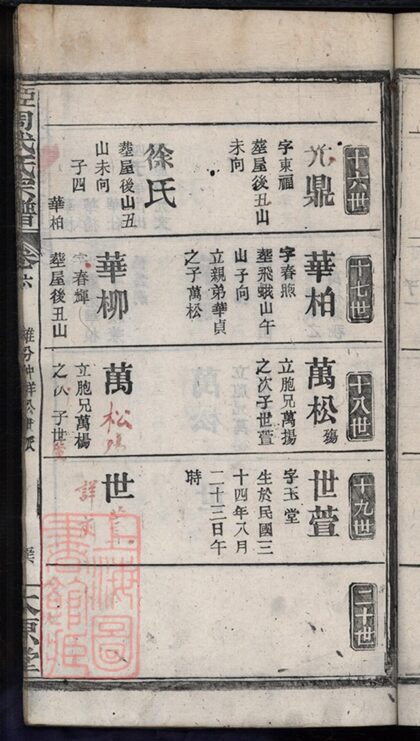 十六世
光鼎
字東福
塟屋後丑山
未向
徐氏
塟屋後山丑
山未向
子四
華柏
十七世
華柏
字春煦
塟飛蛾山午
山子向
立親弟華貞
之子萬松
華柳
字春輝
塟屋後丑山
十八世
萬松殤
立胞兄萬揚
之次子世萱
萬松殤
立胞兄萬楊
之次子世萱
十九世
世萱
字玉堂
生於民國三
十四年八月
二十三日午
時
世萱
詳前
二十世
氏宗譜
卷六
太原堂
上海圖書館